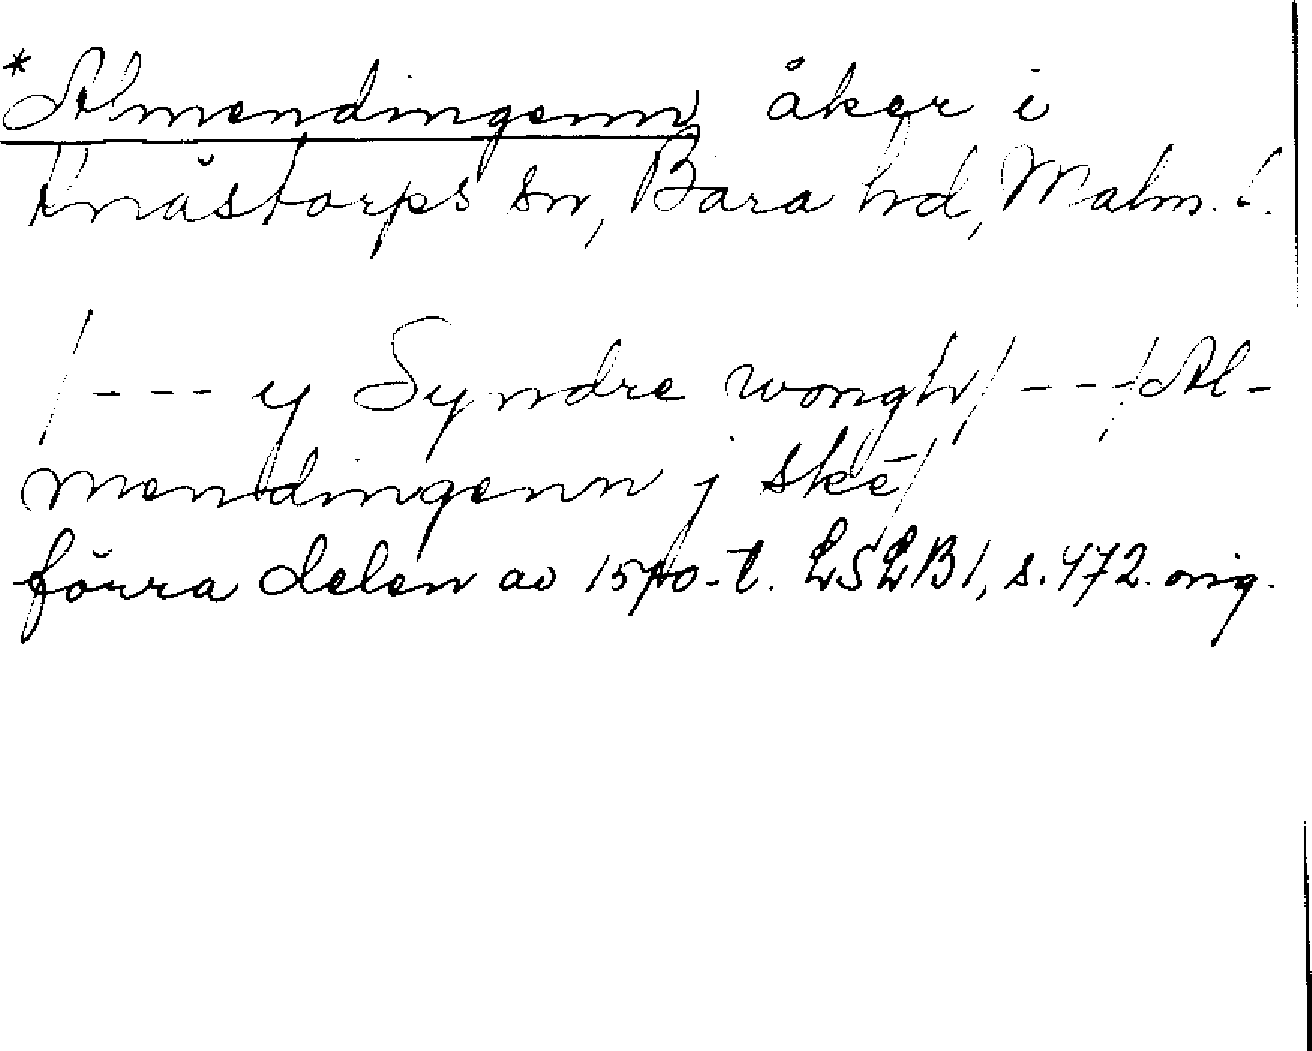 *Almendingenn åker i
Knästorps sn, Bara hd, Malm. l.
/--- y Syndre wongh/ --/ Al-
mendingenn j skē/
förra delen av 1570-t. LSLB1, s. 472. orig.